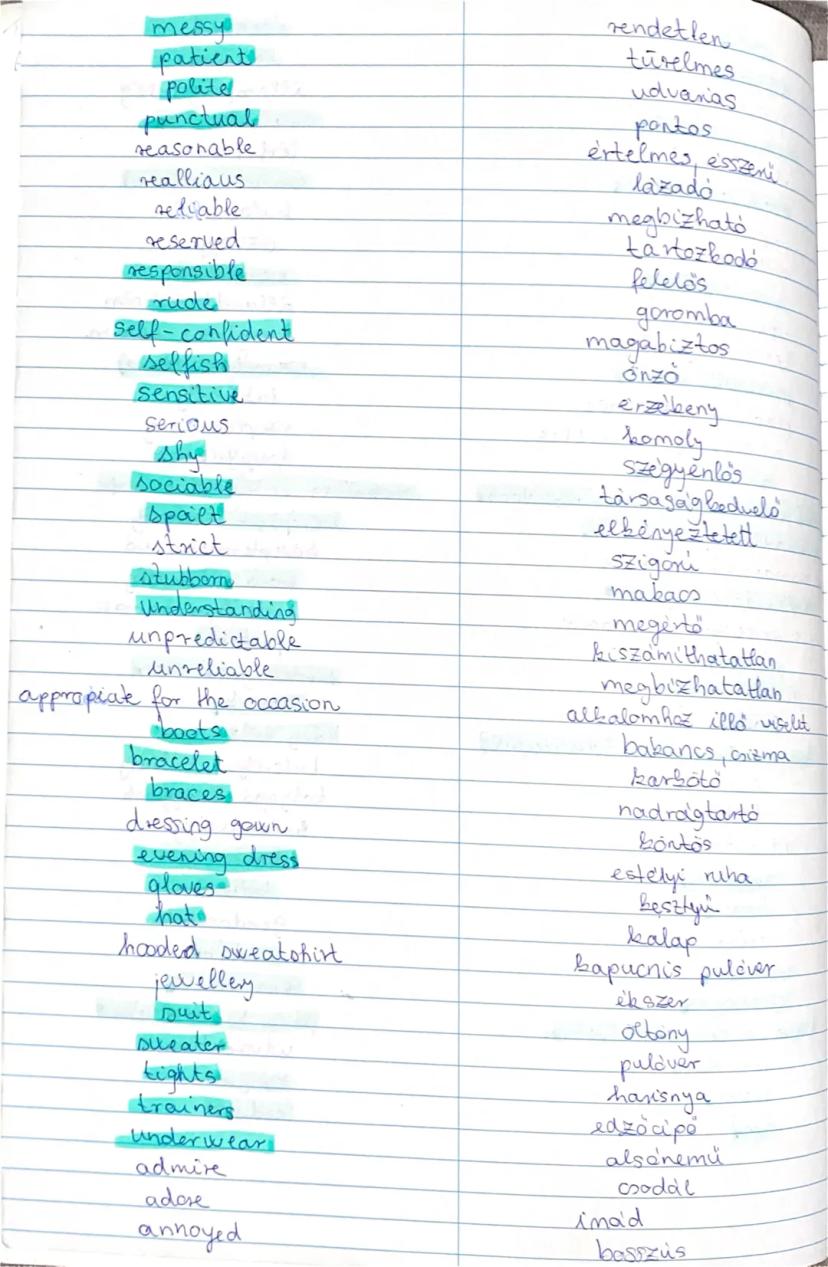 messy rendetlen
patient türelmes
polite udvarias
punctual pontos
reasonable értelmes, ésszerű
realliaus lázadó
reliable megbízható
reserved tartózkodó
responsible felelős
rude goromba
self-confident magabiztos
selfish önző
sensitive érzébeny
serious komoly
shy szégyenlős
sociable társaságkedvelő
spoilt elkényeztetett
strict szigorú
stubborn makacs
understanding megértő
unpredictable kiszámíthatatlan
unreliable megbízhatatlan
appropiate for the occasion alkalomhoz illő viselet
boots bakancs, csizma
bracelet karkötő
braces nadrágtartó
dressing gown köntös
evening dress estélyi ruha
gloves kesztyű
hat kalap
hooded sweatshirt kapucnis pulóver
jewellery ékszer
suit öltöny
sweater pulóver
tights harisnya
trainers edzőcipő
underwear alsónemű
admire csodál
adore imád
annoyed bosszús